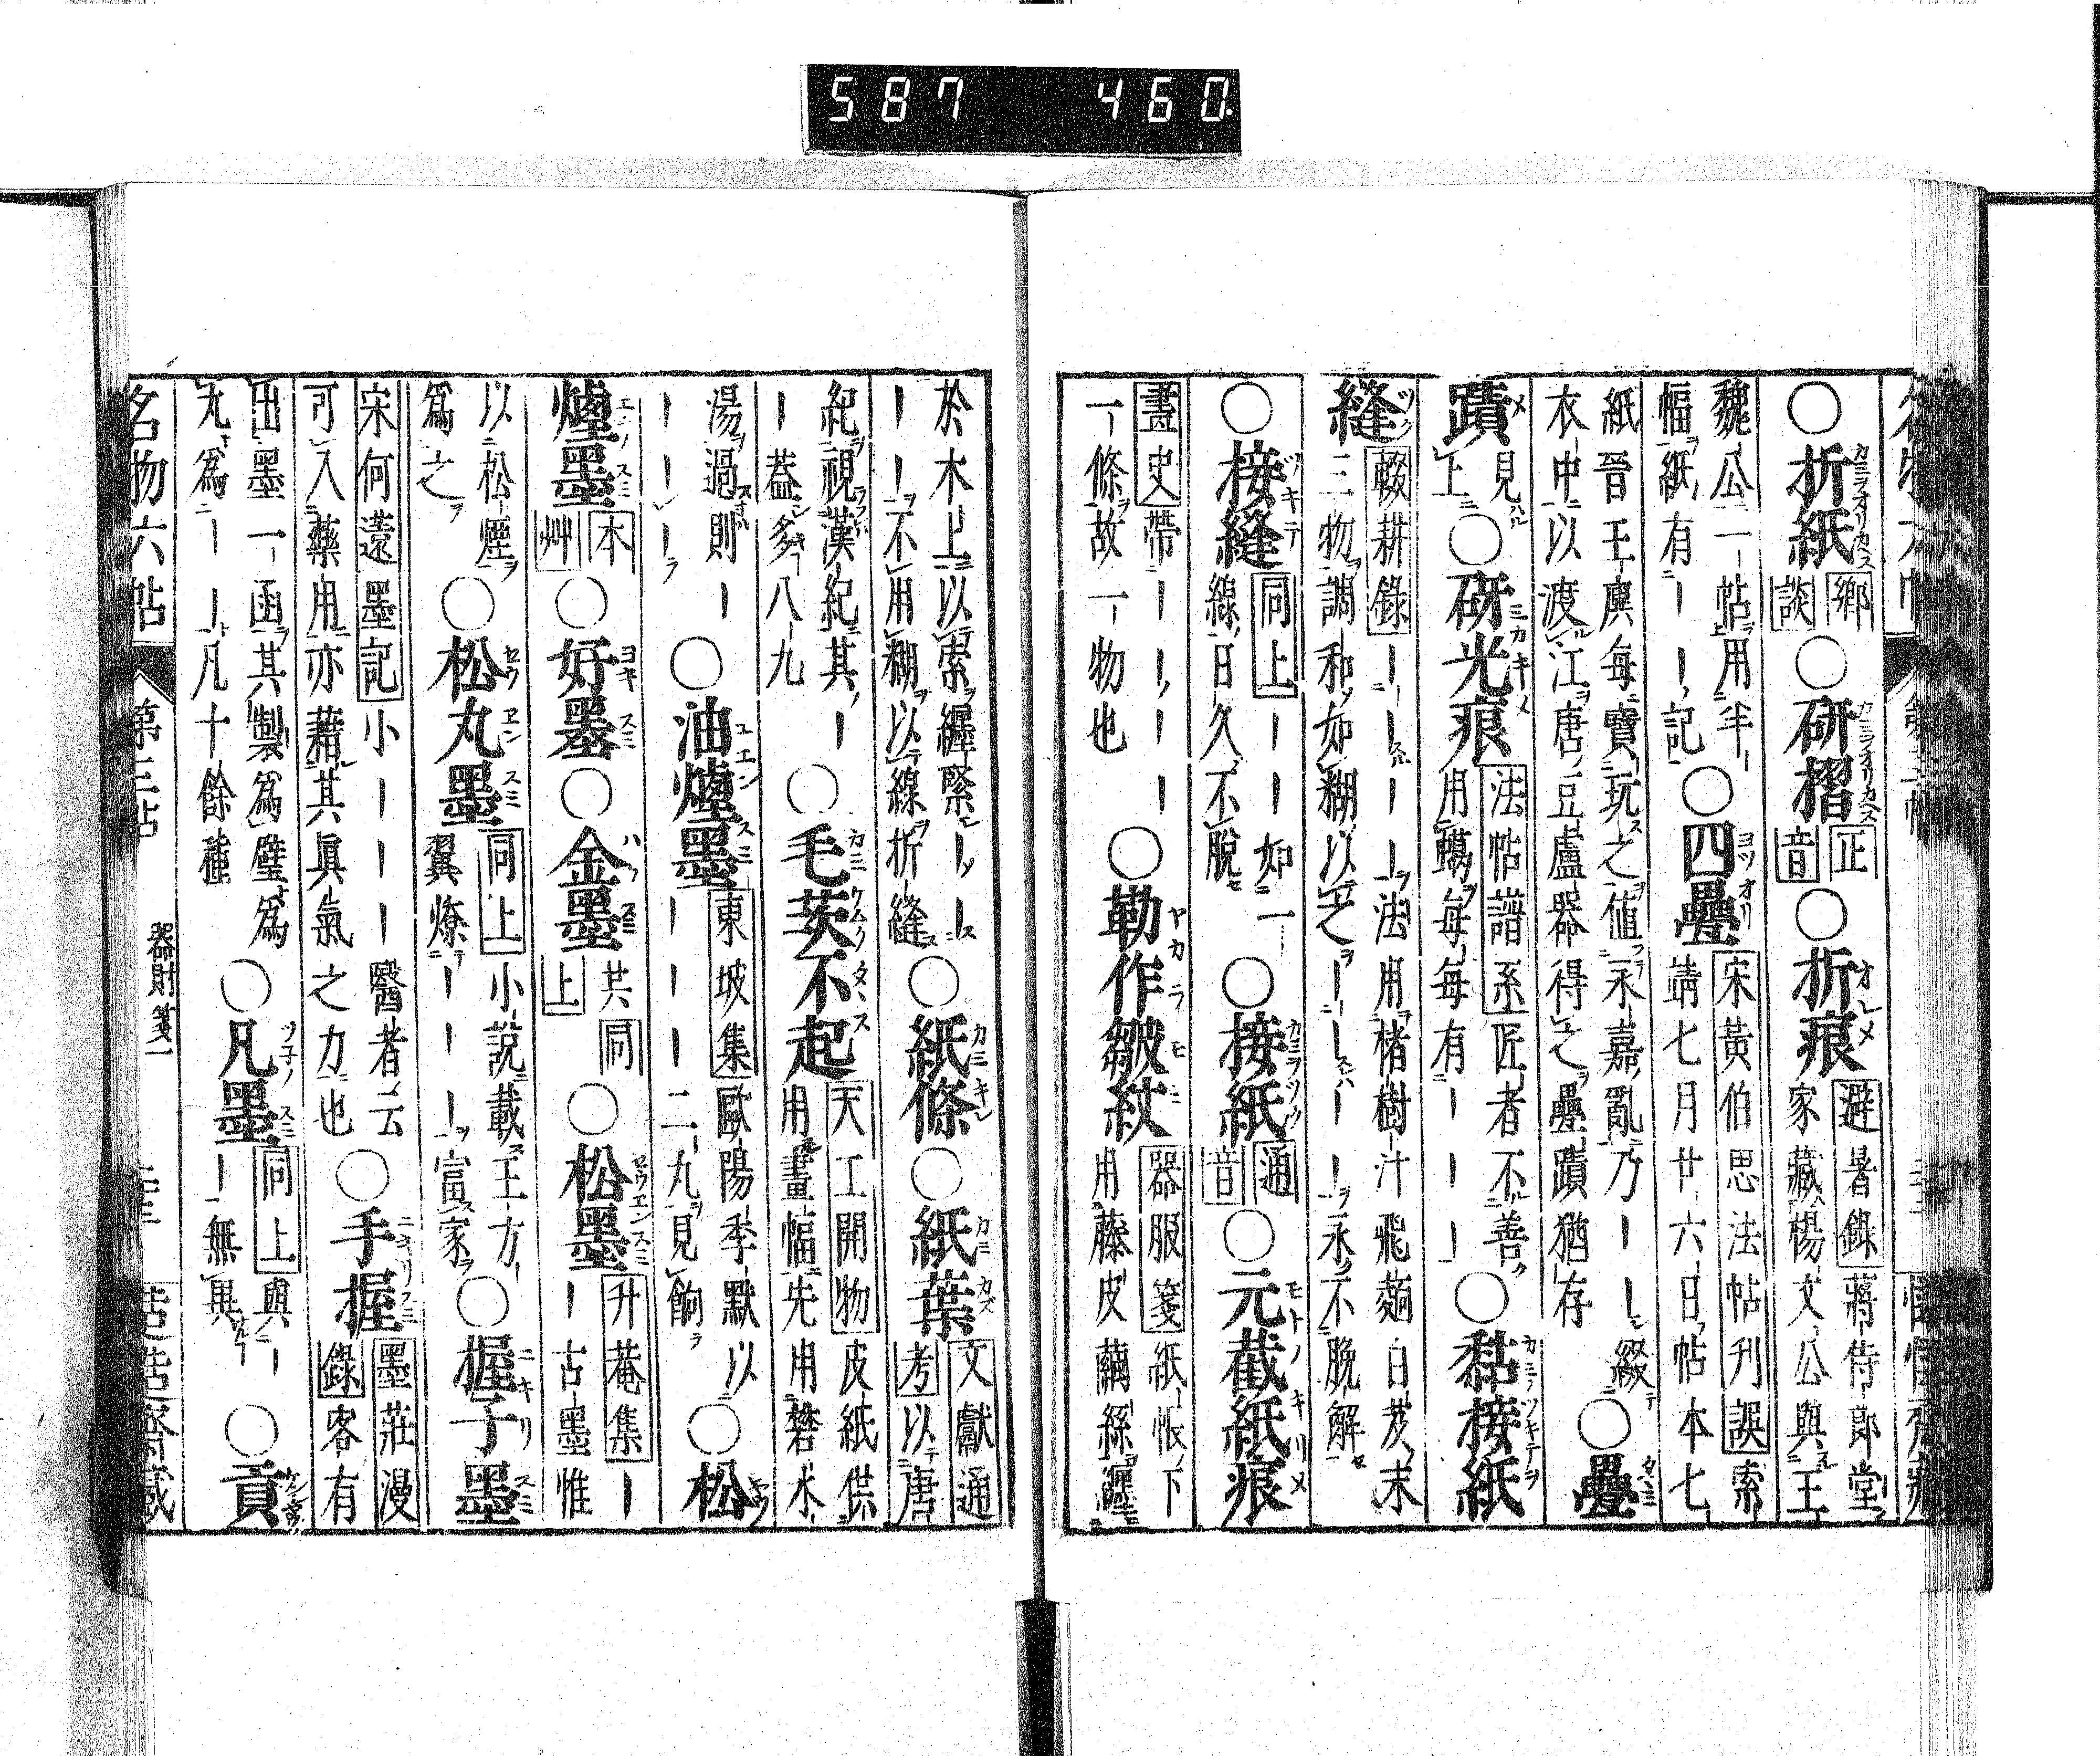 587 460
○折紙 鄉談 ○研摺 正音 ○折痕 避暑錄 蔣侍郎堂家藏楊文公與王
魏公一帖用半幅紙有｜｜記 ○四疊 宋黃伯思法帖刋誤 索靖七月廿六日帖本七
紙晉王廙每寶玩之値永嘉亂乃｜｜綴衣中以渡江唐豆盧器得之疊蹟猶存 ○疊
蹟 見上 ○研光痕 法帖譜系 匠者不善用蠟每每有｜｜｜ ○黏接紙
縫 輟耕錄 ｜｜｜｜法用楮樹汁飛麪白芨末三物調和如糊以之｜｜｜｜永不脫解
○接縫 同上 ｜｜如一線日久不脫 ○接紙 通音 ○元截紙痕
畫史 帶｜｜｜｜一條故一物也 ○勒作皺紋 器服箋 紙帳下用藤皮繭絲纏
於木上以索纏緊｜｜｜｜不用糊以線折縫 ○紙條 ○紙葉 文獻通考 以唐
紀視漢紀其｜｜蓋多八九 ○毛茨不起 天工開物 皮紙供用畫幅先用礬水
湯過則｜｜｜｜ ○油煙墨 東坡集 歐陽季默以｜｜｜｜二丸見餉 ○松
煙墨 本艸 ○好墨 ○金墨 共同上 ○松墨 升菴集 ｜｜古墨惟
以松煙爲之 ○松丸墨 同上 小說載王方翼燎｜｜｜富家 ○握子墨
宋何薳墨記 小｜｜｜醫者云可入藥用亦藉其眞氣之力也 ○手握 墨莊漫錄 客有
出墨一函其製爲璧爲丸爲｜｜凡十餘種 ○凡墨 同上 與｜｜無異 ○貢
名物六帖 第三帖 器財箋一